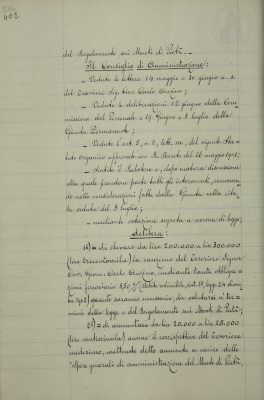 402
del Regolamento sui Monti di Pietà.
Il Consiglio di Amministrazione:
- Vedute le lettere 14 maggio e 30 giugno u. s.
del Tesoriere Sig. Cav. Carlo
- Vedute le deliberazioni 12 giugno della Com-
missione del Personale e 19 Giugno e 3 luglio della
Giunta Permanente;
- Veduto l'art. 5, n. 2, lett. m, del vigente Sta-
tuto organico approvato con R. Decreto del 26 maggio
- Sentito il Relatore e, dopo matura discussione
alla quale prendono parte tutti gli intervenuti,
nelle considerazioni fatte dalla Giunta nella cita-
ta seduta del 3 luglio;
- mediante votazione segreta a norma di legge;
delibera:
1°) = di elevare da lire 200.000 a lire 300.000
(lire trecentomila) la cauzione del Tesoriere Signor
Cav. Carlo mediante tante obbliga-
zioni ferroviarie 3,50%
quante saranno necessarie, da valutarsi a ter-
mini della legge e del Regolamento sui Monti di Pietà;
2°) = di aumentare da lire 20.000 a lire 25.000
(lire venticinquemila) annue il corrispettivo del Tesoriere
medesimo, mettendo detto aumento a carico delle
"Spese generali di amministrazione del Monte di Pietà,